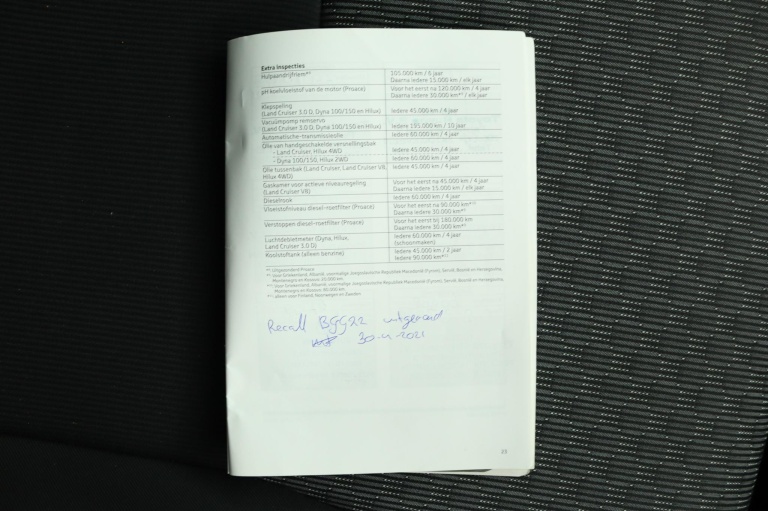 Extra inspecties
Hulpaandrijfriem*¹⁾ 105.000 km / 6 jaar
Daarna iedere 15.000 km / elk jaar
pH koelvloeistof van de motor (Proace) Voor het eerst na 120.000 km / 4 jaar
Daarna iedere 30.000 km*²⁾ / elk jaar
Klepspeling
(Land Cruiser 3.0 D, Dyna 100/150 en Hilux) Iedere 45.000 km / 4 jaar
Vacuümpomp remservo
(Land Cruiser 3.0 D, Dyna 100/150 en Hilux) Iedere 195.000 km / 10 jaar
Automatische-transmissieolie Iedere 60.000 km / 4 jaar
Olie van handgeschakelde versnellingsbak
- Land Cruiser, Hilux 4WD Iedere 45.000 km / 4 jaar
- Dyna 100/150, Hilux 2WD Iedere 60.000 km / 4 jaar
Olie tussenbak (Land Cruiser, Land Cruiser V8, Iedere 45.000 km / 4 jaar
Hilux 4WD)
Gaskamer voor actieve niveauregeling Voor het eerst na 45.000 km / 4 jaar
(Land Cruiser V8) Daarna iedere 15.000 km / elk jaar
Dieselrook Iedere 60.000 km / 4 jaar
Vloeistofniveau diesel-roetfilter (Proace) Voor het eerst na 90.000 km
Daarna iedere 30.000 km
Verstoppen diesel-roetfilter (Proace) Voor het eerst bij 180.000 km
Daarna iedere 30.000 km
Luchtdebietmeter (Dyna, Hilux, Iedere 60.000 km / 4 jaar
Land Cruiser 3.0 D) (schoonmaken)
Koolstoftank (alleen benzine) Iedere 45.000 km / 2 jaar
Iedere 90.000 km
uitgezonderd Proace
Voor Griekenland, Albanië, voormalige Joegoslavische Republiek Macedonië (Fyrom), Servië, Bosnië en Herzegovina,
Montenegro en Kosovo:
Voor Griekenland, Albanië, voormalige Joegoslavische Republiek Macedonië (Fyrom), Servië, Bosnië en Herzegovina,
Montenegro en Kosovo:
alleen voor Finland, Noorwegen en Zweden
Recall BGG22 uitgevoerd
2021